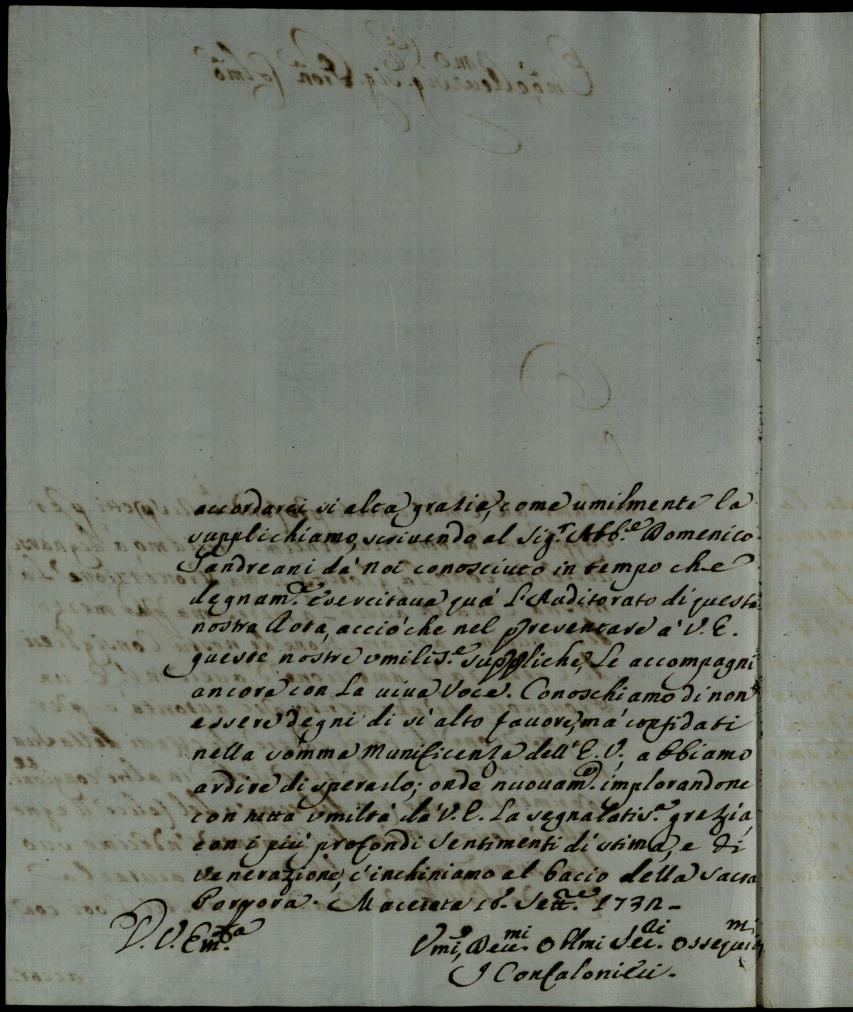 accordarci si alta grazia, come umilmente la
supplichiamo, scrivendo al Sig.r Abb.e Domenico
Sandreani da' noi conosciuto in tempo che
degnam.e esercitaua quà L'Auditorato di questa
nostra Rota, acciò che nel presentare a' V. E.
queste nostre vmilis.e suppliche, Le accompagni
ancora con La uiua Voce. Conoschiamo di non
essere degni di si alto fauore, mà confidati
nella somma Munificenza dell'E. V., abbiamo
ardire di sperarlo; onde nuouam.e implorandone
con tutta vmiltà da' V. E. La segnalatis.a grazia
con i più profondi sentimenti di stima, e di
venerazione, c'inchiniamo al bacio della Sacra
Porpora. Macerata 16. Sett.e 1732
D. V. Em.za
Vmi, Deu.mi Obblmi Ser.ri Ossequi.mi
I Confalonieri.